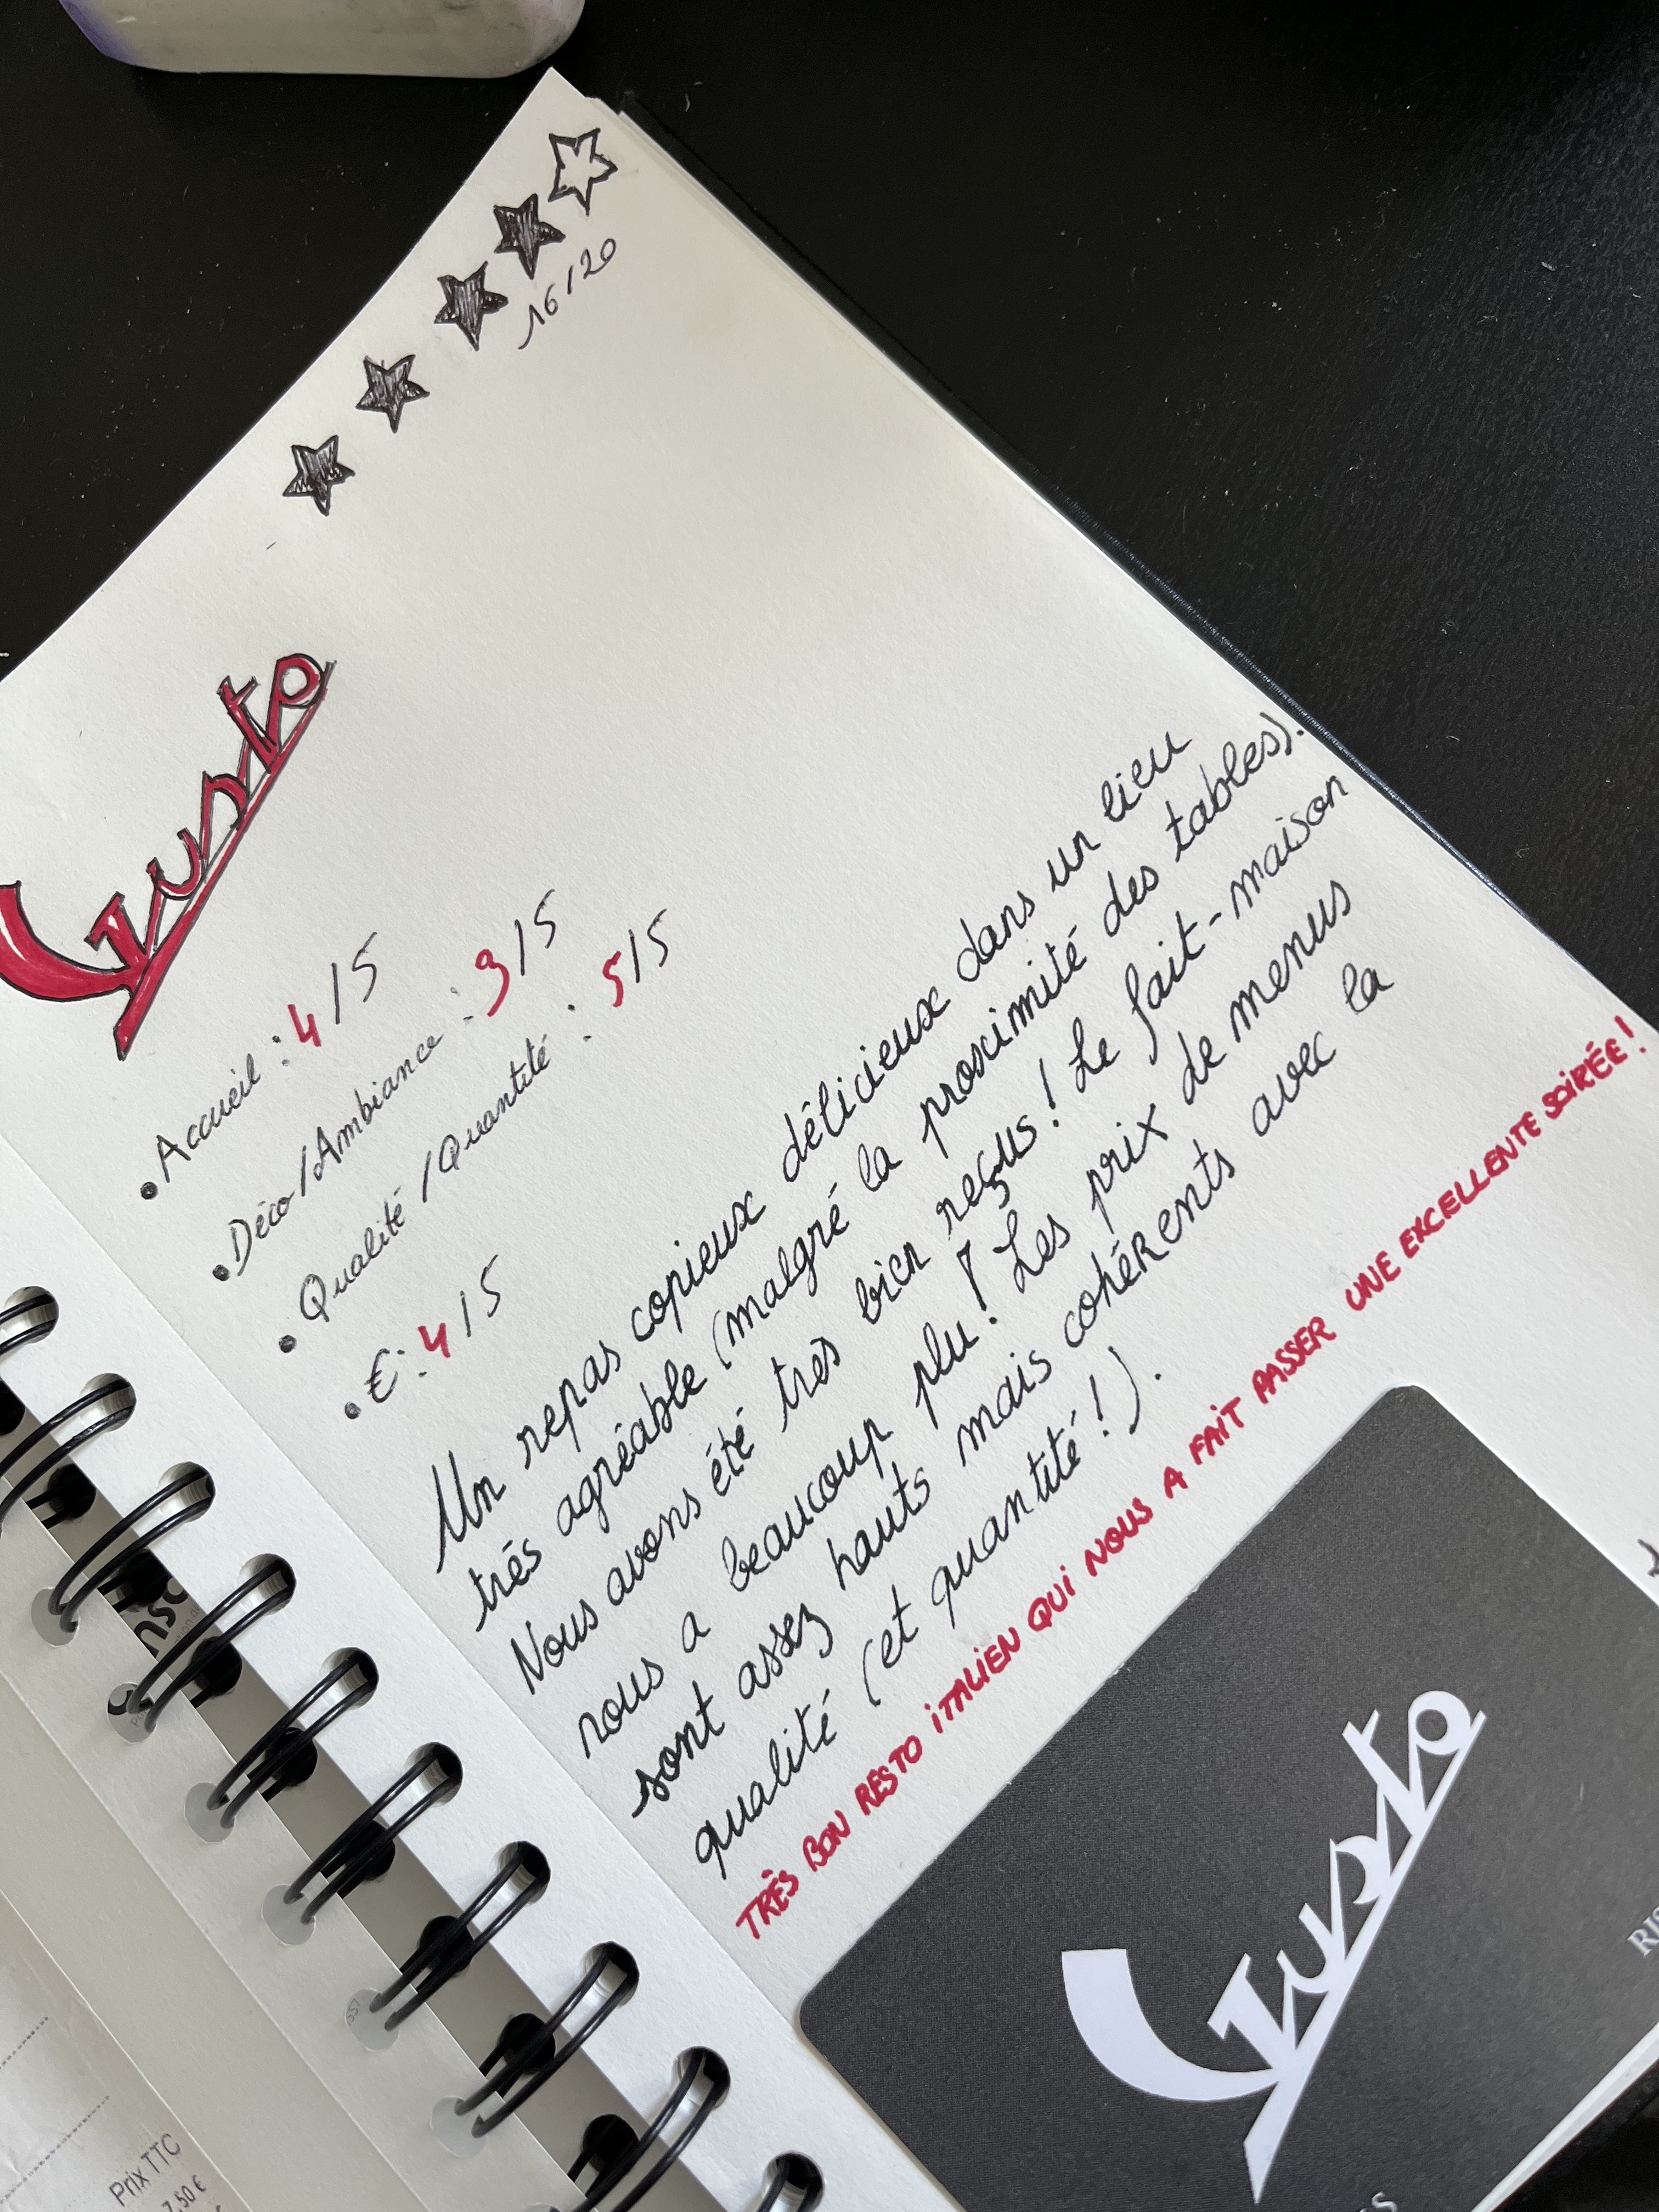 16/20
Gusto
• Accueil : 4/5
• Déco/Ambiance : 3/5
• Qualité/Quantité : 5/5
• €: 4/5
Un repas copieux délicieux dans un lieu
très agréable (malgré la proximité des tables).
Nous avons été très bien reçus! Le fait-maison
nous a beaucoup plu! Les prix de menus
sont assez hauts mais cohérents avec la
qualité (et quantité!).
TRÈS BON RESTO ITALIEN QUI NOUS A FAIT PASSER UNE EXCELLENTE SOIRÉE!
Gusto
Prix TTC